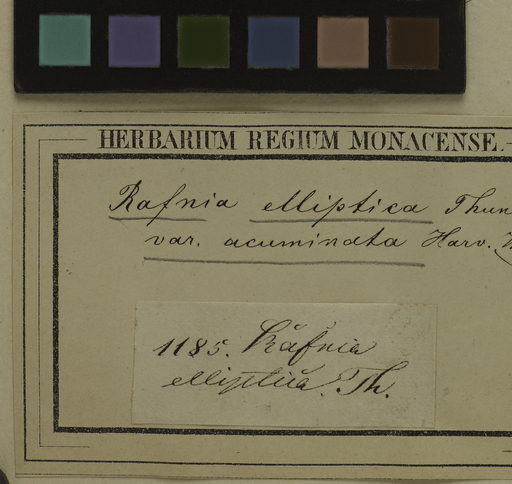 HERBARIUM REGIUM MONACENSE.
Rafnia elliptica Thun
var. acuminata Harv.
1185. Rafnia
elliptica. Th.